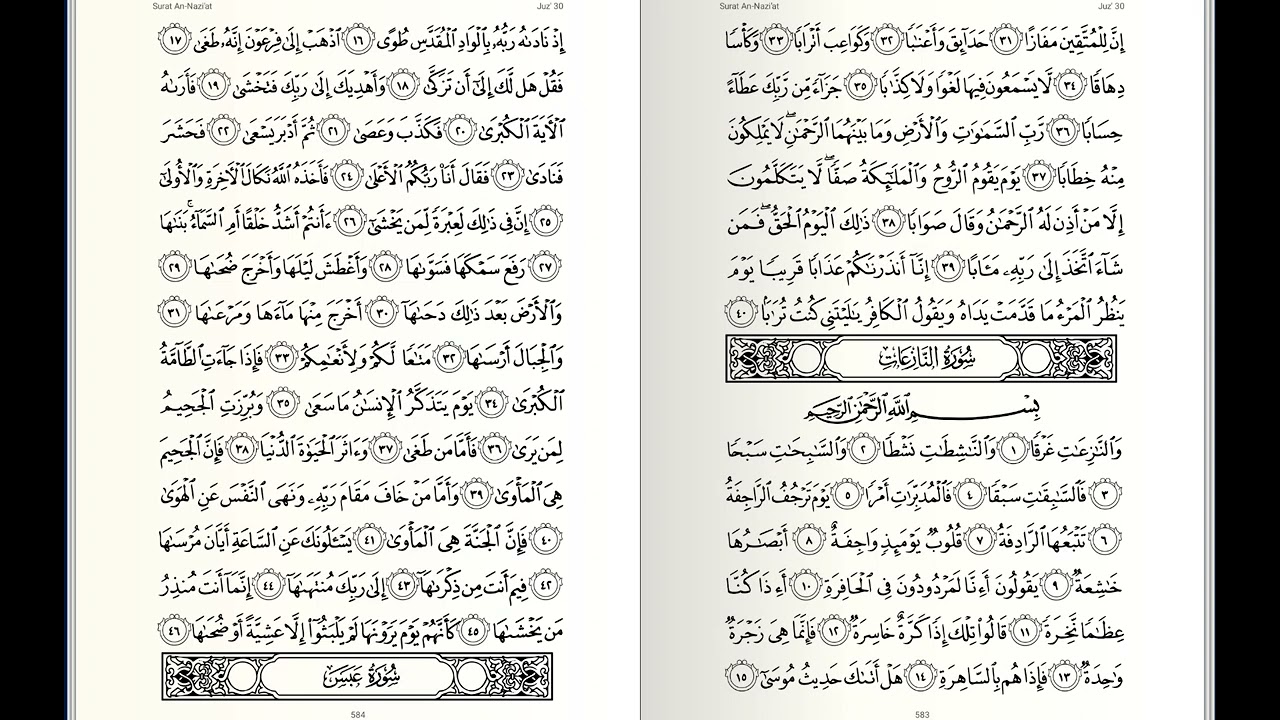 Surat An-Nazi'at
Juz' 30
إِنَّ لِلْمُتَّقِينَ مَفَازًا ٣١ حَدَآئِقَ وَأَعْنَٰبًا ٣٢ وَكَوَاعِبَ أَتْرَابًا ٣٣ وَكَأْسًا
دِهَاقًا ٣٤ لَّا يَسْمَعُونَ فِيهَا لَغْوًا وَلَا كِذَّٰبًا ٣٥ جَزَآءً مِّن رَّبِّكَ عَطَآءً
حِسَابًا ٣٦ رَّبِّ ٱلسَّمَٰوَٰتِ وَٱلْأَرْضِ وَمَا بَيْنَهُمَا ٱلرَّحْمَٰنِ ۖ لَا يَمْلِكُونَ
مِنْهُ خِطَابًا ٣٧ يَوْمَ يَقُومُ ٱلرُّوحُ وَٱلْمَلَٰٓئِكَةُ صَفًّا ۖ لَّا يَتَكَلَّمُونَ
إِلَّا مَنْ أَذِنَ لَهُ ٱلرَّحْمَٰنُ وَقَالَ صَوَابًا ٣٨ ذَٰلِكَ ٱلْيَوْمُ ٱلْحَقُّ ۖ فَمَن
شَآءَ ٱتَّخَذَ إِلَىٰ رَبِّهِۦ مَـَٔابًا ٣٩ إِنَّآ أَنذَرْنَٰكُمْ عَذَابًا قَرِيبًا يَوْمَ
يَنظُرُ ٱلْمَرْءُ مَا قَدَّمَتْ يَدَاهُ وَيَقُولُ ٱلْكَافِرُ يَٰلَيْتَنِى كُنتُ تُرَٰبًۢا ٤٠
سُورَةُ النَّازِعَاتِ
بِسْمِ ٱللَّهِ ٱلرَّحْمَٰنِ ٱلرَّحِيمِ
وَٱلنَّٰزِعَٰتِ غَرْقًا ١ وَٱلنَّٰشِطَٰتِ نَشْطًا ٢ وَٱلسَّٰبِحَٰتِ سَبْحًا
٣ فَٱلسَّٰبِقَٰتِ سَبْقًا ٤ فَٱلْمُدَبِّرَٰتِ أَمْرًا ٥ يَوْمَ تَرْجُفُ ٱلرَّاجِفَةُ
٦ تَتْبَعُهَا ٱلرَّادِفَةُ ٧ قُلُوبٌ يَوْمَئِذٍ وَاجِفَةٌ ٨ أَبْصَٰرُهَا
خَٰشِعَةٌ ٩ يَقُولُونَ أَءِنَّا لَمَرْدُودُونَ فِى ٱلْحَافِرَةِ ١٠ أَءِذَا كُنَّا
عِظَٰمًا نَّخِرَةً ١١ قَالُوا۟ تِلْكَ إِذًا كَرَّةٌ خَاسِرَةٌ ١٢ فَإِنَّمَا هِىَ زَجْرَةٌ
وَٰحِدَةٌ ١٣ فَإِذَا هُم بِٱلسَّاهِرَةِ ١٤ هَلْ أَتَىٰكَ حَدِيثُ مُوسَىٰٓ ١٥
583
Surat An-Nazi'at
Juz' 30
إِذْ نَادَىٰهُ رَبُّهُۥ بِٱلْوَادِ ٱلْمُقَدَّسِ طُوًى ١٦ ٱذْهَبْ إِلَىٰ فِرْعَوْنَ إِنَّهُۥ طَغَىٰ ١٧
فَقُلْ هَل لَّكَ إِلَىٰٓ أَن تَزَكَّىٰ ١٨ وَأَهْدِيَكَ إِلَىٰ رَبِّكَ فَتَخْشَىٰ ١٩ فَأَرَىٰهُ
ٱلْءَايَةَ ٱلْكُبْرَىٰ ٢٠ فَكَذَّبَ وَعَصَىٰ ٢١ ثُمَّ أَدْبَرَ يَسْعَىٰ ٢٢ فَحَشَرَ
فَنَادَىٰ ٢٣ فَقَالَ أَنَا۠ رَبُّكُمُ ٱلْأَعْلَىٰ ٢٤ فَأَخَذَهُ ٱللَّهُ نَكَالَ ٱلْءَاخِرَةِ وَٱلْأُولَىٰٓ
٢٥ إِنَّ فِى ذَٰلِكَ لَعِبْرَةً لِّمَن يَخْشَىٰٓ ٢٦ ءَأَنتُمْ أَشَدُّ خَلْقًا أَمِ ٱلسَّمَآءُ ۚ بَنَىٰهَا
٢٧ رَفَعَ سَمْكَهَا فَسَوَّىٰهَا ٢٨ وَأَغْطَشَ لَيْلَهَا وَأَخْرَجَ ضُحَىٰهَا ٢٩
وَٱلْأَرْضَ بَعْدَ ذَٰلِكَ دَحَىٰهَآ ٣٠ أَخْرَجَ مِنْهَا مَآءَهَا وَمَرْعَىٰهَا ٣١
وَٱلْجِبَالَ أَرْسَىٰهَا ٣٢ مَتَٰعًا لَّكُمْ وَلِأَنْعَٰمِكُمْ ٣٣ فَإِذَا جَآءَتِ ٱلطَّآمَّةُ
ٱلْكُبْرَىٰ ٣٤ يَوْمَ يَتَذَكَّرُ ٱلْإِنسَٰنُ مَا سَعَىٰ ٣٥ وَبُرِّزَتِ ٱلْجَحِيمُ
لِمَن يَرَىٰ ٣٦ فَأَمَّا مَن طَغَىٰ ٣٧ وَءَاثَرَ ٱلْحَيَوٰةَ ٱلدُّنْيَا ٣٨ فَإِنَّ ٱلْجَحِيمَ
هِىَ ٱلْمَأْوَىٰ ٣٩ وَأَمَّا مَنْ خَافَ مَقَامَ رَبِّهِۦ وَنَهَى ٱلنَّفْسَ عَنِ ٱلْهَوَىٰ
٤٠ فَإِنَّ ٱلْجَنَّةَ هِىَ ٱلْمَأْوَىٰ ٤١ يَسْـَٔلُونَكَ عَنِ ٱلسَّاعَةِ أَيَّانَ مُرْسَىٰهَا
٤٢ فِيمَ أَنتَ مِن ذِكْرَىٰهَآ ٤٣ إِلَىٰ رَبِّكَ مُنتَهَىٰهَآ ٤٤ إِنَّمَآ أَنتَ مُنذِرُ
مَن يَخْشَىٰهَا ٤٥ كَأَنَّهُمْ يَوْمَ يَرَوْنَهَا لَمْ يَلْبَثُوٓا۟ إِلَّا عَشِيَّةً أَوْ ضُحَىٰهَا ٤٦
سُورَةُ عَبَسَ
584